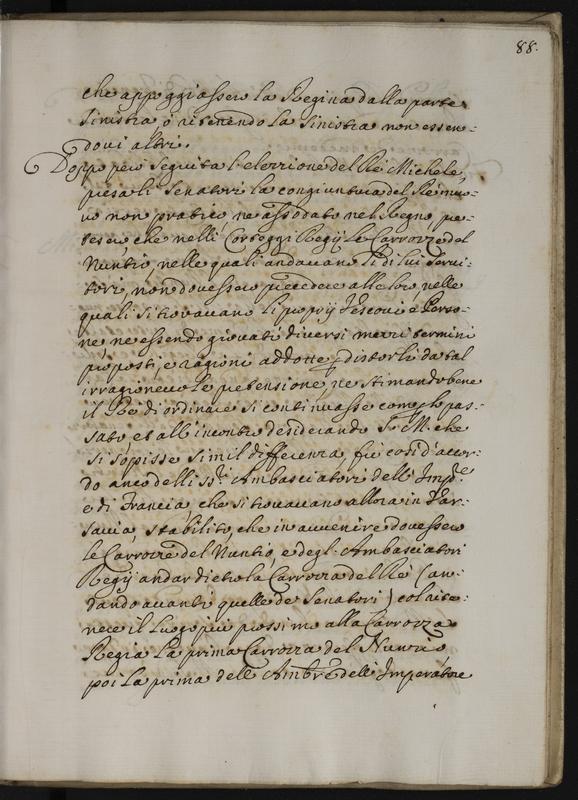 88.
che appoggiassero la Regina dalla parte
sinistra ò ritenendo la sinistra non essen-
dovi altri.
Doppo però seguita l'elezzione del Rè Michele,
presa li Senatori la congiuntura del Rè nuo-
vo non pratico ne assodato nel Regno, pre-
tesero, che nelli Corteggi Regij le Carrozze del
Nuntio, nelle quali andavano li di lui servi-
tori, non dovessero precedere alle loro, nelle
quali si trovavano li proprij Vescovi e Perso-
ne, ne essendo giovati diversi mezzi termini
proposti, e ragioni addotte p distorli da tal
irragionevole pretensione, ne stimando bene
il Rè di ordinare si continuasse com p lo pas-
sato, et all'incontro desiderando S. M. che
si sopisse simil differenza, fù così d'accor-
do anco delli ss.ri Ambasciatori dell'Imp.re
e di Francia, che si trovavano allora in Var-
savia, stabilito, che in avvenire dovessero
le Carrozze del Nuntio, e degl'Ambasciatori
Regij andar dietro la Carrozza del Rè (an-
dando avanti quelle de Senatori) col rite-
nere il luogo più prossimo alla Carrozza
Regia la prima Carrozza del Nunzio
poi la prima dell'Ambre dell'Imperatore